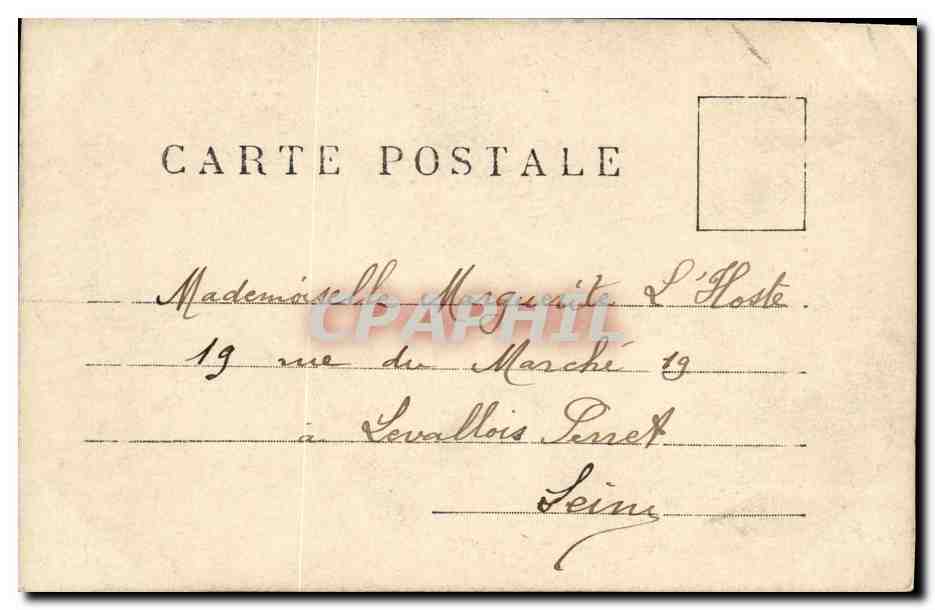 CARTE POSTALE
Mademoiselle Marguerite L'Hoste.
CPAPHIL
19 rue du Marché 19
à Levallois Perret
Seine